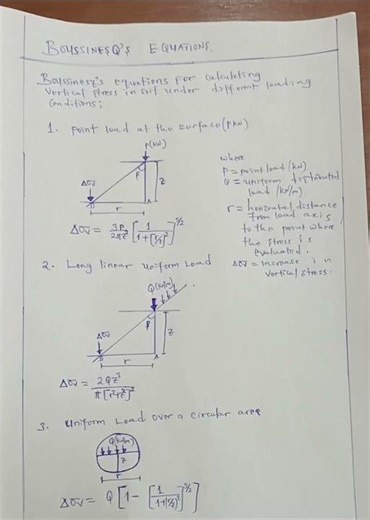 BOUSSINESQ'S EQUATIONS.
Boussinesq's equations for calculating
vertical stress in soil under different loading
conditions;
1. point load at the surface (PkN)
P(kN)
Δσv
P
z
r
A
Δσv = 3P/2πz² [1/1+(r/z)²]^5/2
where
P = point load (kN)
Q = uniform distributed
load (kN/m)
r = horizontal distance
from load axis
to the point where
the stress is
evaluated.
Δσv = increase in
vertical stress.
2. Long linear uniform load
Q(kN/m)
Δσv
P
z
r
A
Δσv = 2Qz³/π[r²+z²]²
3. Uniform Load over a circular area
z
r
Δσv = Q[1-[1/1+(r/z)²]^3/2]